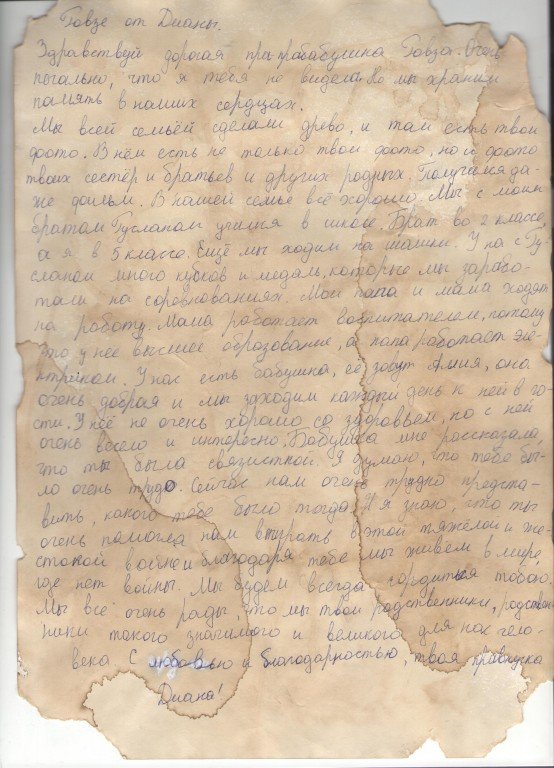 Говзе от Дианы.
Здравствуй дорогая прапрабабушка Говза. Очень
печально, что я тебя не видела. Но мы храним
память в наших сердцах.
Мы всей семьёй сделали древо, и там есть твои
фото. В нём есть не только твои фото, но и фото
твоих сестёр и братьев и других родных. Получился да-
же фильм. В нашей семье всё хорошо. Мы с моим
братом Русланом учимся в школе. Брат во 2 классе,
а я в 5 классе. Ещё мы ходим на шашки. У нас с Ру
сланом много кубков и медаль, которые мы зарабо-
тали на соревнованиях. Мои папа и мама ходят
на работу. Мама работает воспитателем, потому
что у неё высшее образование, а папа работает эле-
ктриком. У нас есть бабушка, её зовут Алия, она
очень добрая и мы заходим каждый день к ней в го-
сти. У неё не очень хорошо со здоровьем, но с ней
очень весело и интересно. Бабушка мне рассказала,
что ты была связисткой. Я думаю, что тебе бы-
ло очень трудо. Сейчас нам очень трудно предста-
вить, каково тебе было тогда. Я знаю, что ты
очень помогла нам выграть в этой тяжёлой и же-
стокой войне и благодаря тебе мы живём в мире,
где нет войны. Мы будем всегда гордиться тобою.
Мы всё очень рады, что мы твои родственники, родствен
ники такого значимого и великого для нас чело-
века С любовью и благодарностью, твоя правнучка
Диана!